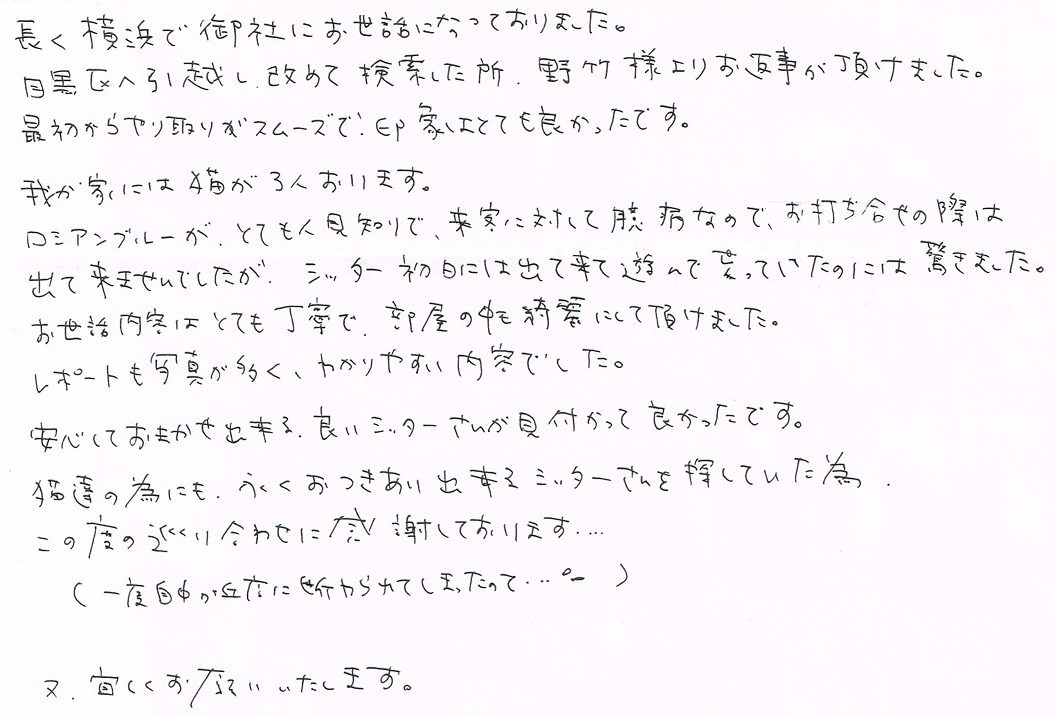 長く横浜で御社にお世話になっておりました。
目黒区へ引越し、改めて検索した所、野竹様よりお返事が頂けました。
最初からやり取りがスムーズで、印象はとても良かったです。
我が家には猫が3人おります。
ロシアンブルーが、とても人見知りで、来客に対して臆病なので、お打ち合せの際は
出て来ませんでしたが、シッター初日には出て来て遊んで貰っていたのには驚きました。
お世話内容はとても丁寧で、部屋の中も綺麗にして頂けました。
レポートも写真が多く、わかりやすい内容でした。
安心しておまかせ出来る、良いシッターさんが見付かって良かったです。
猫達の為にも、永くおつきあい出来るシッターさんを探していた為、
この度の巡り合わせに感謝しております…
(一度自由が丘店に断わられてしまったので…。)
又、宜しくお願いいたします。